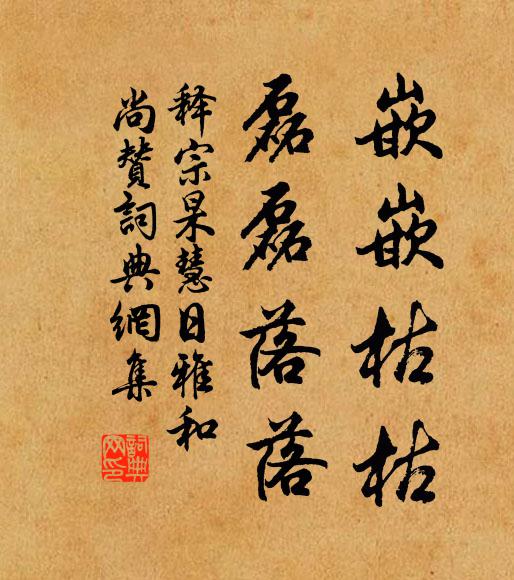 嵌嵌枯枯
磊磊落落
释宗杲慧日雅和
尚赞詞典網集
詞典
网印